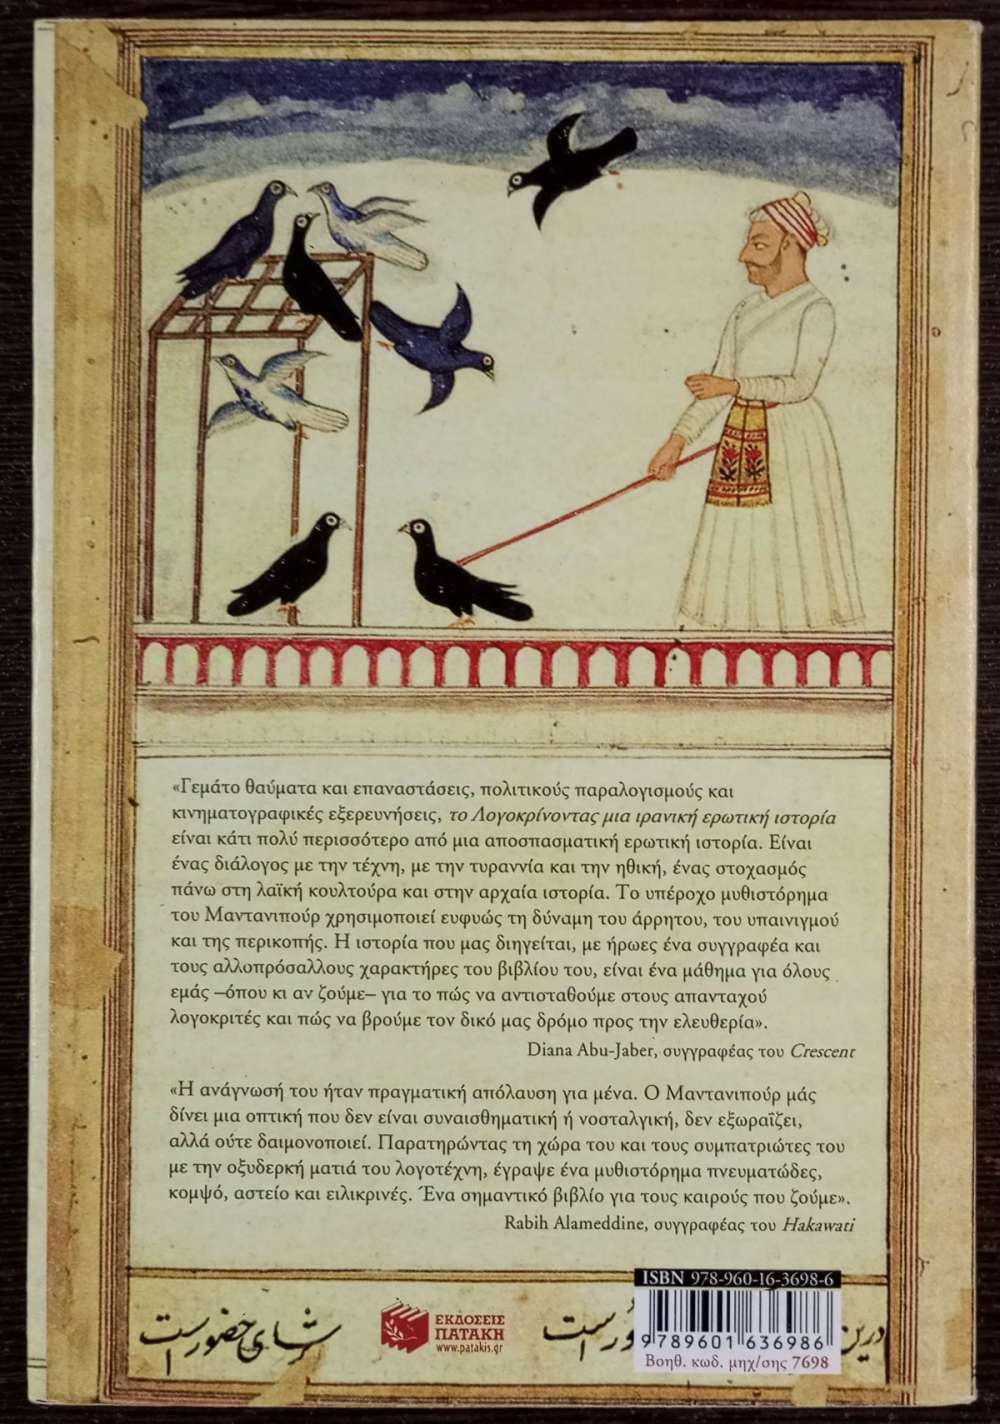 «Γεμάτο θαύματα και επαναστάσεις, πολιτικούς παραλογισμούς και
κινηματογραφικές εξερευνήσεις, το Λογοκρίνοντας μια ιρανική ερωτική ιστορία
είναι κάτι πολύ περισσότερο από μια αποσπασματική ερωτική ιστορία. Είναι
ένας διάλογος με την τέχνη, με την τυραννία και την ηθική, ένας στοχασμός
πάνω στη λαϊκή κουλτούρα και στην αρχαία ιστορία. Το υπέροχο μυθιστόρημα
του Μαντανιπούρ χρησιμοποιεί ευφυώς τη δύναμη του άρρητου, του υπαινιγμού
και της περικοπής. Η ιστορία που μας διηγείται, με ήρωες ένα συγγραφέα και
τους αλλοπρόσαλλους χαρακτήρες του βιβλίου του, είναι ένα μάθημα για όλους
εμάς –όπου κι αν ζούμε– για το πώς να αντισταθούμε στους απανταχού
λογοκριτές και πώς να βρούμε τον δικό μας δρόμο προς την ελευθερία».
Diana Abu-Jaber, συγγραφέας του Crescent
«Η ανάγνωσή του ήταν πραγματική απόλαυση για μένα. Ο Μαντανιπούρ μάς
δίνει μια οπτική που δεν είναι συναισθηματική ή νοσταλγική, δεν εξωραΐζει,
αλλά ούτε δαιμονοποιεί. Παρατηρώντας τη χώρα του και τους συμπατριώτες του
με την οξυδερκή ματιά του λογοτέχνη, έγραψε ένα μυθιστόρημα πνευματώδες,
κομψό, αστείο και ειλικρινές. Ένα σημαντικό βιβλίο για τους καιρούς που ζούμε».
Rabih Alameddine, συγγραφέας του Hakawati
ISBN 978-960-16-3698-6
ΕΚΔΟΣΕΙΣ
ΠΑΤΑΚΗ
www.patakis.gr
9 789601 636986
Βοηθ. κωδ. μηχ/σης 7698